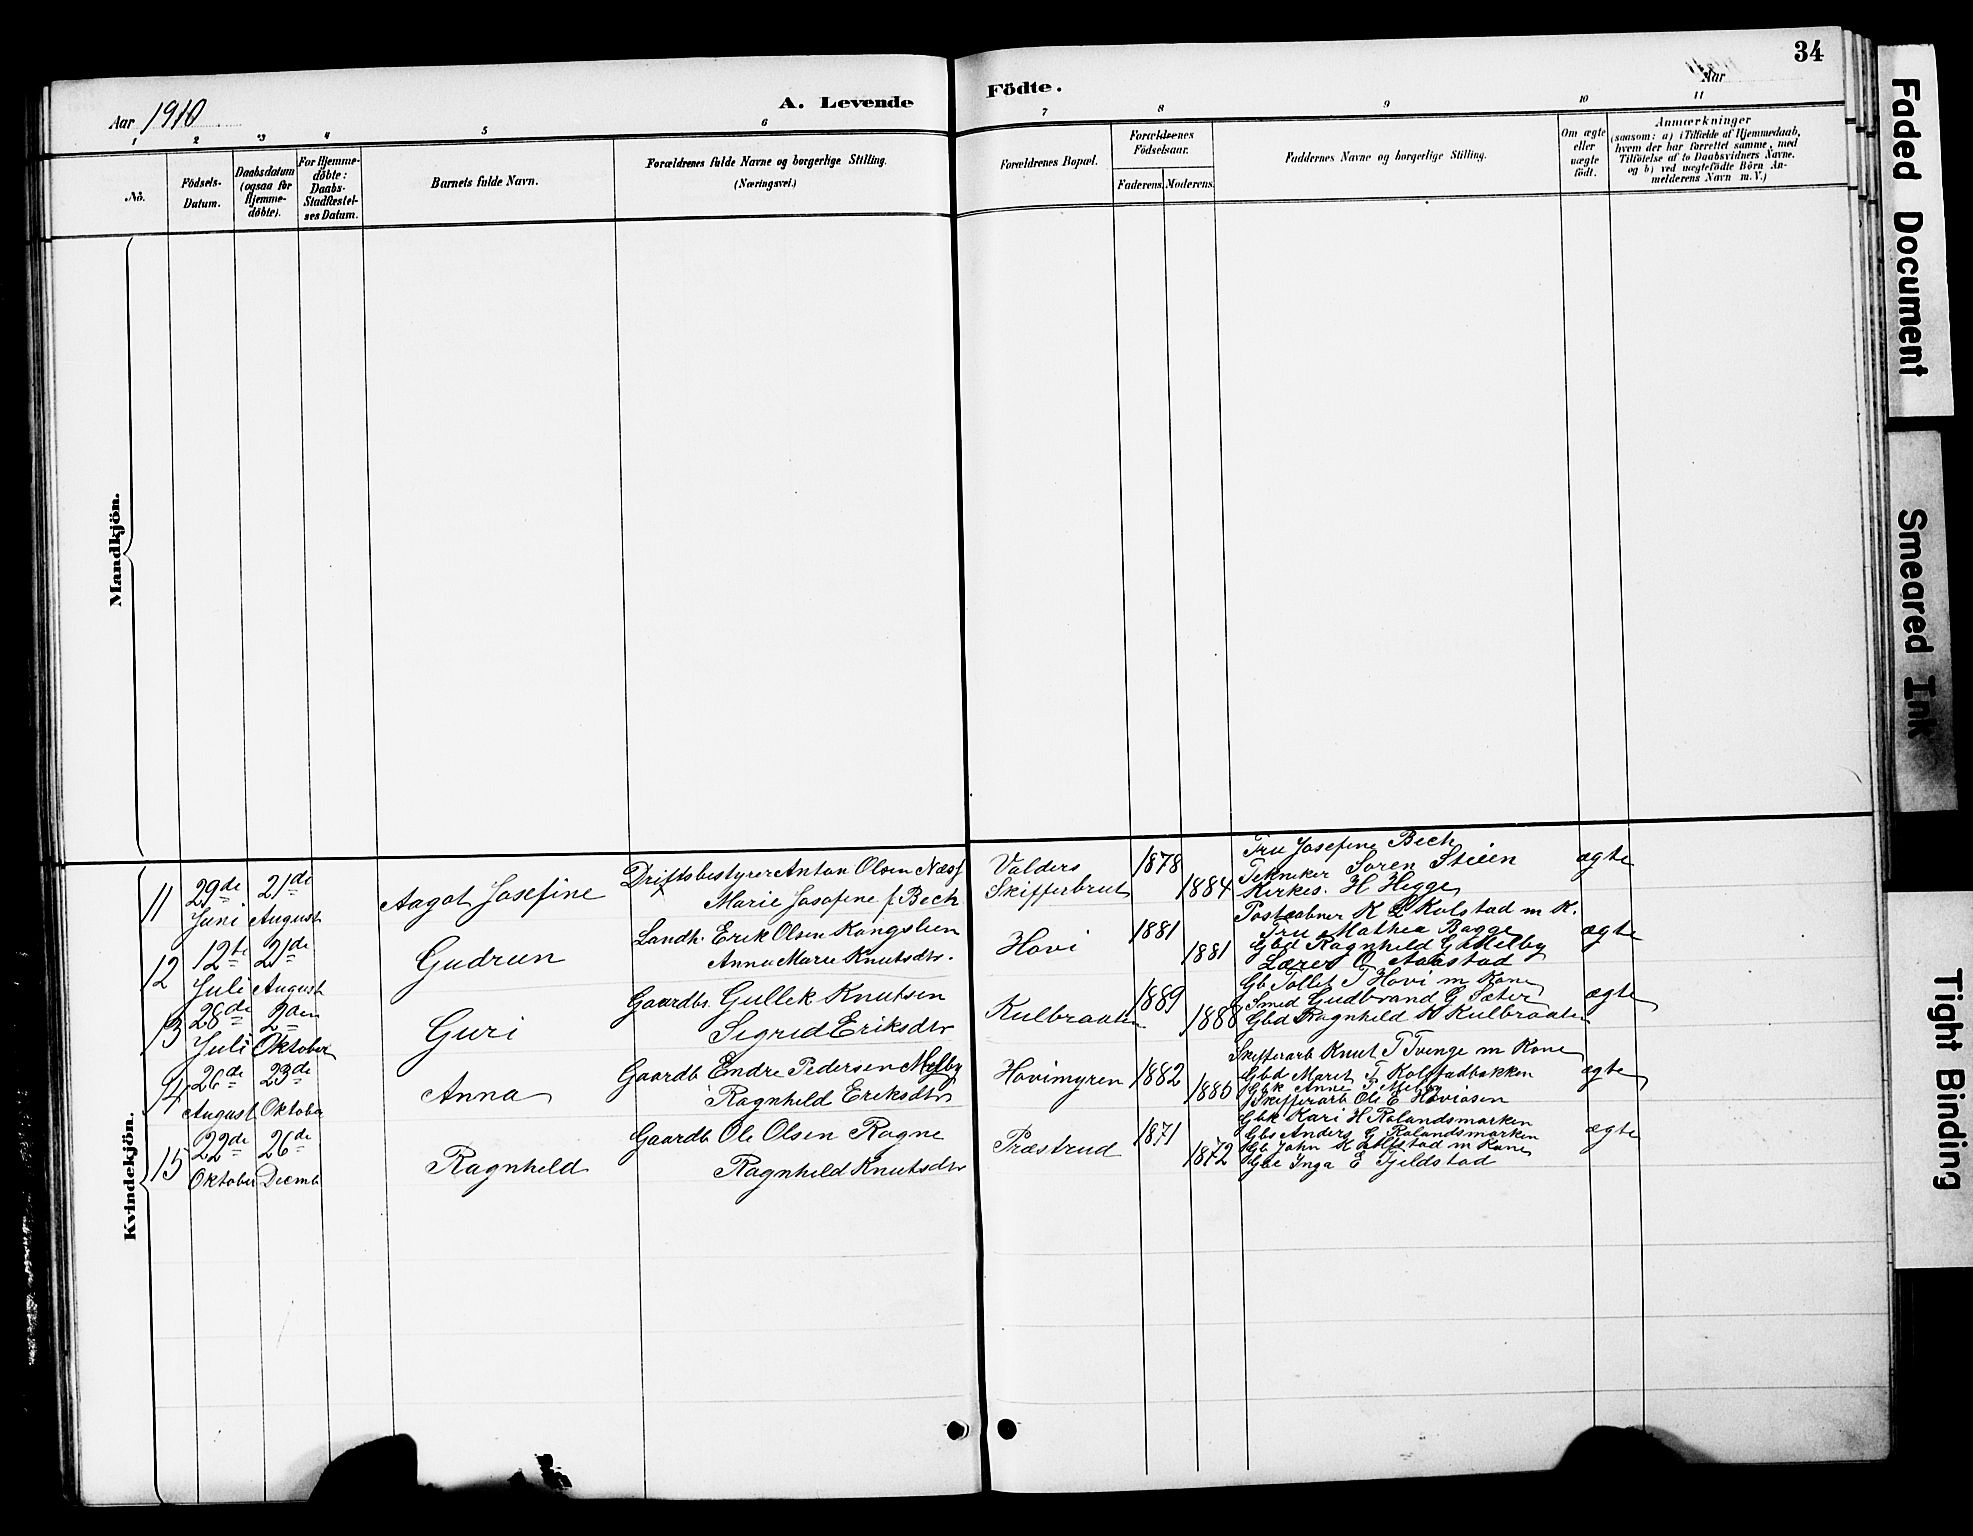 34
Aar 1910
A. Levende
Födte.
Aar
1
2
3
4
5
6
7
8
9
10
11
Nö.
Födsels-
Datum.
Daabsdatum
(ogsaa for
Hjemme-
döbte).
For Hjemme-
döbte:
Daabs-
Stadfæstel-
ses Datum.
Barnets fulde Navn.
Forældrenes fulde Navne og borgerlige Stilling.
(Næringsvei.)
Forældrenes Bopæl.
Forældrenes
Födselsaar.
Faderens. Moderens.
Faddernes Navne og borgerlige Stilling.
Om ægte
eller
uægte
födt.
Anmærkninger
(saasom: a) i Tilfælde af Hjemmedaab,
hvem der har forrettet samme, med
Tilföielse af to Daabsvidners Navne.
og b) ved uægtefödte Börn An-
melderens Navn m.V.)
Mandkjön.
Kvindekjön.
11
29de
Juni
21de
August
Aagot Josefine
Driftsbestyrer Anton Olsen Næss
Marie Josefine f. Bech
Valders
Skifferbrud
1878
1884
Fru Josefine Bech
Tekniker Soren Steien
Kirkes. H Hegge
ægte
12
12te
Juli
21de
August
Gudrun
Landh. Erik Olsen Kongslien
Anna Marie Knutsdtr.
Hovi
1881
1881
Postaabner K L Kolstad m K.
Fru Mathea Bagge
Gbd Ragnhild G Melby
Lærer O Aabstad
ægte
13
28de
Juli
2den
Oktober
Guri
Gaardbr. Gullek Knutsen
Sigrid Eriksdtr
Kulbraaten
1889
1888
Gb Tollef T Hovi m Kone
Smed Gudbrand G Sæter
Gbd Ragnhild K Kulbraaten
ægte
14
26de
August
23de
Oktober
Anna
Gaardb Endre Pedersen Melby
Ragnhild Eriksdtr
Hovimyren
1882
1885
Skifferarb Knut T Tvenge m Kone
Gbd Marit T Kolstadbakken
Gbk Anne P Melby
Skifferarb Ole E Hoviosen
ægte
15
22de
Oktober
26de
Decmb
Ragnhild
Gaardb Ole Olsen Rogne
Ragnhild Knutsdtr
Præstrud
1871
1872
Gbk Kari H Rolandsmarken
Gbs Anders G Rolandsmarken
Gb John K Alfstad m Kone
Gbe Inga E Fjeldstad
ægte
Faded Document
Smeared Ink
Tight Binding